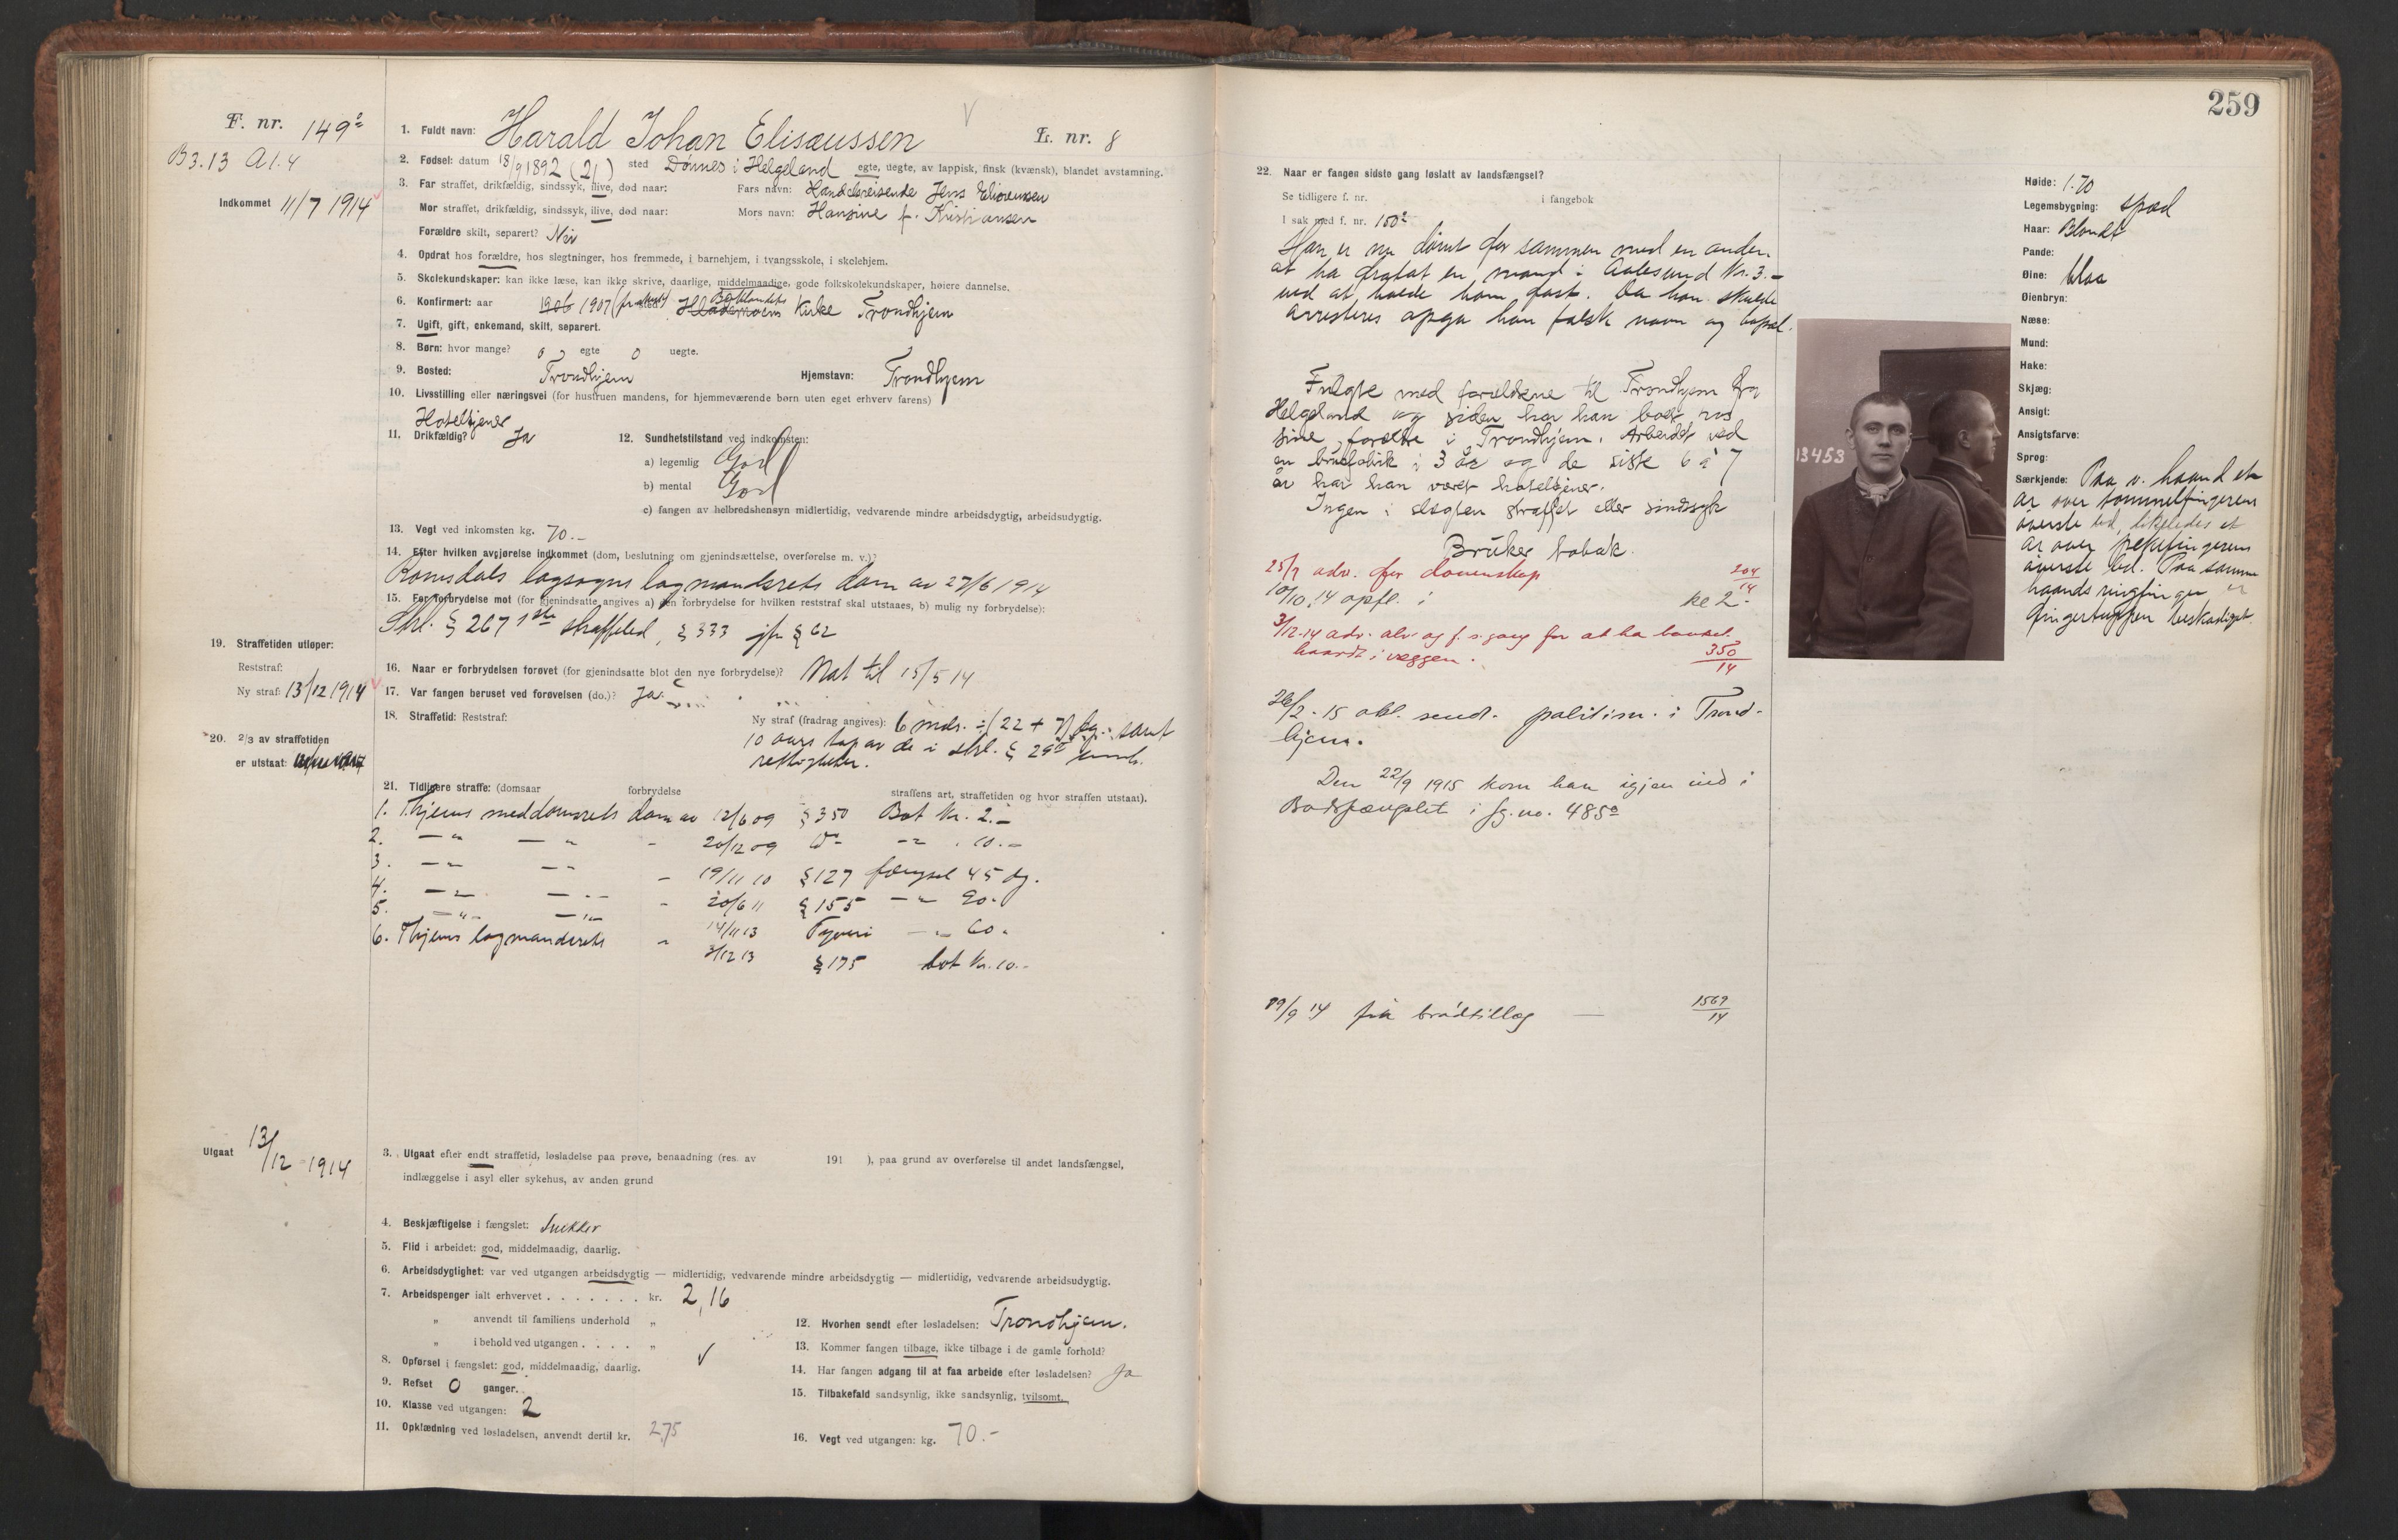 F. nr. 149²
B3.13 A1.4
Indkommet 11/7 1914
1. Fuldt navn: Harald Johan Elisæussen
L. nr. 8
2. Fødsel: datum 18/9 1892 (21) sted Dønnes i Helgeland egte, uegte, av lappisk, finsk (kvænsk), blandet avstamning.
3. Far straffet, drikfældig, sindssyk, ilive, død naar: Fars navn: Handelsreisende Jens Elisæussen
Mor straffet, drikfældig, sindssyk, ilive, død naar: Mors navn: Hansine f. Kristiansen
Forældre skilt, separert? Nei
4. Opdrat hos forældre, hos slegtninger, hos fremmede, i barnehjem, i tvangsskole, i skolehjem.
5. Skolekundskaper: kan ikke læse, kan ikke skrive, daarlige, middelmaadige, gode folkskolekundskaper, høiere dannelse.
6. Konfirmert: aar 1906 1907 Baklandets Kirke Trondhjem
7. Ugift, gift, enkemand, skilt, separert.
8. Børn: hvor mange? 0 egte 0 uegte.
9. Bosted: Trondhjem Hjemstavn: Trondhjem
10. Livsstilling eller næringsvei (for hustruen mandens, for hjemmeværende børn uten eget erhverv farens)
Hoteltjener
11. Drikfældig? Ja 12. Sundhetstilstand ved indkomsten:
a) legemlig God
b) mental God
c) fangen av helbredshensyn midlertidig, vedvarende mindre arbeidsdygtig, arbeidsudygtig.
13. Vegt ved inkomsten kg. 70.-
14. Efter hvilken avgjørelse indkommet (dom, beslutning om gjenindsættelse, overførelse m. v.)?
Romsdals lagsogns lagmandsrets dom av 27/6 1914
15. For forbrydelse mot (for gjenindsatte angives a) den forbrydelse for hvilken reststraf skal utstaaes, b) mulig ny forbrydelse):
Strl. § 267 1ste straffeled, § 333 jfr § 62
16. Naar er forbrydelsen forøvet (for gjenindsatte blot den nye forbrydelse)? Nat til 15/5 14
17. Var fangen beruset ved forøvelsen (do.)? Ja.
18. Straffetid: Reststraf: Ny straf (fradrag angives): 6 mdr. ÷ (22 + 7) dg. samt
10 aars tap av de i strl. § 29
rettigheter.
19. Straffetiden utløper:
Reststraf:
Ny straf: 13/12 1914
20. 2/3 av straffetiden
er utstaat:
21. Tidligere straffe: (domsaar forbrydelse straffens art, straffetiden og hvor straffen utstaat).
1. Thjems meddomsrets dom av 12/6 09 § 350 Bot kr. 2.-
2. — " — " - 20/12 09 do - " . 10.-
3. — " — " - 19/11 10 § 127 fængsel 45 dg.
4. — " — " - 20/6 11 § 155 — " 90.
5. — " — " 14/11 13 Tyveri — " 60.
6. Thjems lagmandsrets - 3/12 13 § 175 bot kr. 10.-
Utgaat 13/12 1914
3. Utgaat efter endt straffetid, løsladelse paa prøve, benaadning (res. av 191 ), paa grund av overførelse til andet landsfængsel,
indlæggelse i asyl eller sykehus, av anden grund
4. Beskjæftigelse i fængslet: Snekker
5. Flid i arbeidet: god, middelmaadig, daarlig.
6. Arbeidsdygtighet: var ved utgangen arbeidsdygtig — midlertidig, vedvarende mindre arbeidsdygtig — midlertidig, vedvarende arbeidsudygtig.
7. Arbeidspenger ialt erhvervet . . . . . . . kr. 2,16
" anvendt til familiens underhold "
" i behold ved utgangen . . . . "
8. Opførsel i fængslet: god, middelmaadig, daarlig.
9. Refset 0 ganger.
10. Klasse ved utgangen: 2
11. Opklædning ved løsladelsen, anvendt dertil kr. 2,75
12. Hvorhen sendt efter løsladelsen: Trondhjem.
13. Kommer fangen tilbage, ikke tilbage i de gamle forhold?
14. Har fangen adgang til at faa arbeide efter løsladelsen? Ja
15. Tilbakefald sandsynlig, ikke sandsynlig, tvilsomt.
16. Vegt ved utgangen: kg. 70.-
259
22. Naar er fangen sidste gang løslatt av landsfængsel?
Se tidligere f. nr. i fangebok
I sak med f. nr. 150²
Han er nu dømt for sammen med en anden
at ha fratat en mand i Aalesund kr. 3.-
ved at holde ham fast. Da han skulde
arresteres opga han falsk navn og bopæl.
Fulgte med forældrene til Trondhjem fra
Helgeland og siden har han boet hos
sine forældre i Trondhjem. Arbeidet ved
en brusfabrik i 3 år og de siste 6 à 7
år har han været hoteltjener.
Ingen i slægten straffet eller sindssyk
Bruker tobak.
25/7 adv. for dovenskap 204/14
10/10.14 opfl. i kl 2.
3/12-14 adv. alv. og f. s. gang for at ha banket
haardt i væggen. 350/14
26/2-15 sendt politim. i Trond-
hjem.
Den 22/9 1915 kom han igjen ind i
Bodsfængslet i fg. no. 485²
19/9 14 får brødtillæg — 1569/14
Høide: 1.70
Legemsbygning: spæd
Haar: Blondt
Pande:
Øine: blaa
Øienbryn:
Næse:
Mund:
Hake:
Skjæg:
Ansigt:
Ansigtsfarve:
Sprog:
Særkjende: Paa v. haand et
ar over tommelfingerens
øverste led, likeledes et
ar over pekefingerens
øverste led. Paa samme
haands ringfinger er
fingertuppen beskadiget.
13453